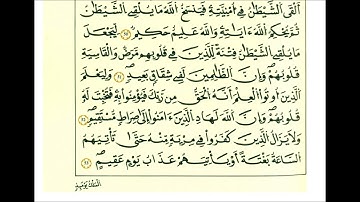 أَلْقَى ٱلشَّيْطَٰنُ فِىٓ أُمْنِيَّتِهِۦ فَيَنسَخُ ٱللَّهُ مَا يُلْقِى ٱلشَّيْطَٰنُ
ثُمَّ يُحْكِمُ ٱللَّهُ ءَايَٰتِهِۦ وَٱللَّهُ عَلِيمٌ حَكِيمٌ لِّيَجْعَلَ
مَا يُلْقِى ٱلشَّيْطَٰنُ فِتْنَةً لِّلَّذِينَ فِى قُلُوبِهِم مَّرَضٌ وَٱلْقَاسِيَةِ
قُلُوبُهُمْ وَإِنَّ ٱلظَّٰلِمِينَ لَفِى شِقَاقٍۭ بَعِيدٍ وَلِيَعْلَمَ
ٱلَّذِينَ أُوتُوا۟ ٱلْعِلْمَ أَنَّهُ ٱلْحَقُّ مِن رَّبِّكَ فَيُؤْمِنُوا۟ بِهِۦ فَتُخْبِتَ لَهُۥ
قُلُوبُهُمْ وَإِنَّ ٱللَّهَ لَهَادِ ٱلَّذِينَ ءَامَنُوٓا۟ إِلَىٰ صِرَٰطٍ مُّسْتَقِيمٍ
وَلَا يَزَالُ ٱلَّذِينَ كَفَرُوا۟ فِى مِرْيَةٍ مِّنْهُ حَتَّىٰ تَأْتِيَهُمُ
ٱلسَّاعَةُ بَغْتَةً أَوْ يَأْتِيَهُمْ عَذَابُ يَوْمٍ عَقِيمٍ
ٱلْمُلْكُ يَوْمَئِذٍ